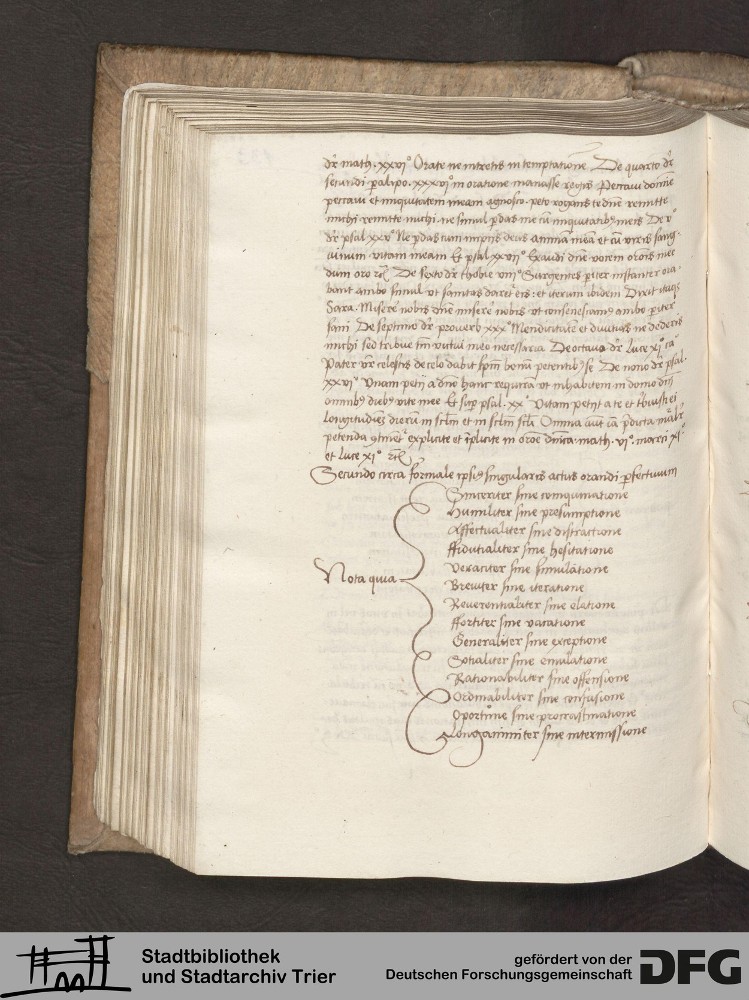 dr math. xxvi° Orate ne intretis in temptatione De quarto dr
secundi paralipo. xxxvi° in oratione manasse regis Peccavi domine
peccavi et iniquitatem meam agnosco. peto rogans te dne remitte
michi remitte michi. ne simul perdas me cum iniquitatibus meis De v°
dr psal xxv° Ne perdas cum impiis deus animam meam et cum viris sang-
uinum vitam meam Et psal xxvi° Exaudi dne vocem oronis mee
dum oro De sexto dr thobie viii° Surgentes pariter instanter ora-
bant ambo simul ut sanitas daretur eis. et iterum ibidem Dixit itaque
Sara. Miserere nobis dne miserere nobis ut consenescamus ambo pariter
sani De septimo dr proverb xxx° Mendicitatem et divitias ne dederis
michi sed tribue tm victui meo necessaria De octavo dr Luce xi°
Pater vr celestis de celo dabit spm bonum petentibus se De nono dr psal.
xxvi° Unam petii a dno hanc requiram ut inhabitem in domo dni
omnibus diebus vite mee Et super psal. xx° Vitam petiit a te et tribuisti ei
Longitudinem dierum in sclm et in sclm scli Omnia predicta
petenda explicite et implicite in oroe dnica. math. vi°. marci xi°
et Luce xi°
Secundo circa formale ipsius singularis actus orandi perfectivum
Nota quia
Sinceriter sine coinquinatione
Humiliter sine presumptione
Affectualiter sine distractione
Ffidutialiter sine hesitatione
Veraciter sine simulatione
Breviter sine iteratione
Reverentialiter sine elatione
Ffortiter sine vacatione
Generaliter sine exceptione
Sotialiter sine emulatione
Rationabiliter sine offensione
Ordinabiliter sine confusione
Oportune sine procrastinatione
Longanimiter sine intermissione
Stadtbibliothek
und Stadtarchiv Trier
gefördert von der
Deutschen Forschungsgemeinschaft
DFG